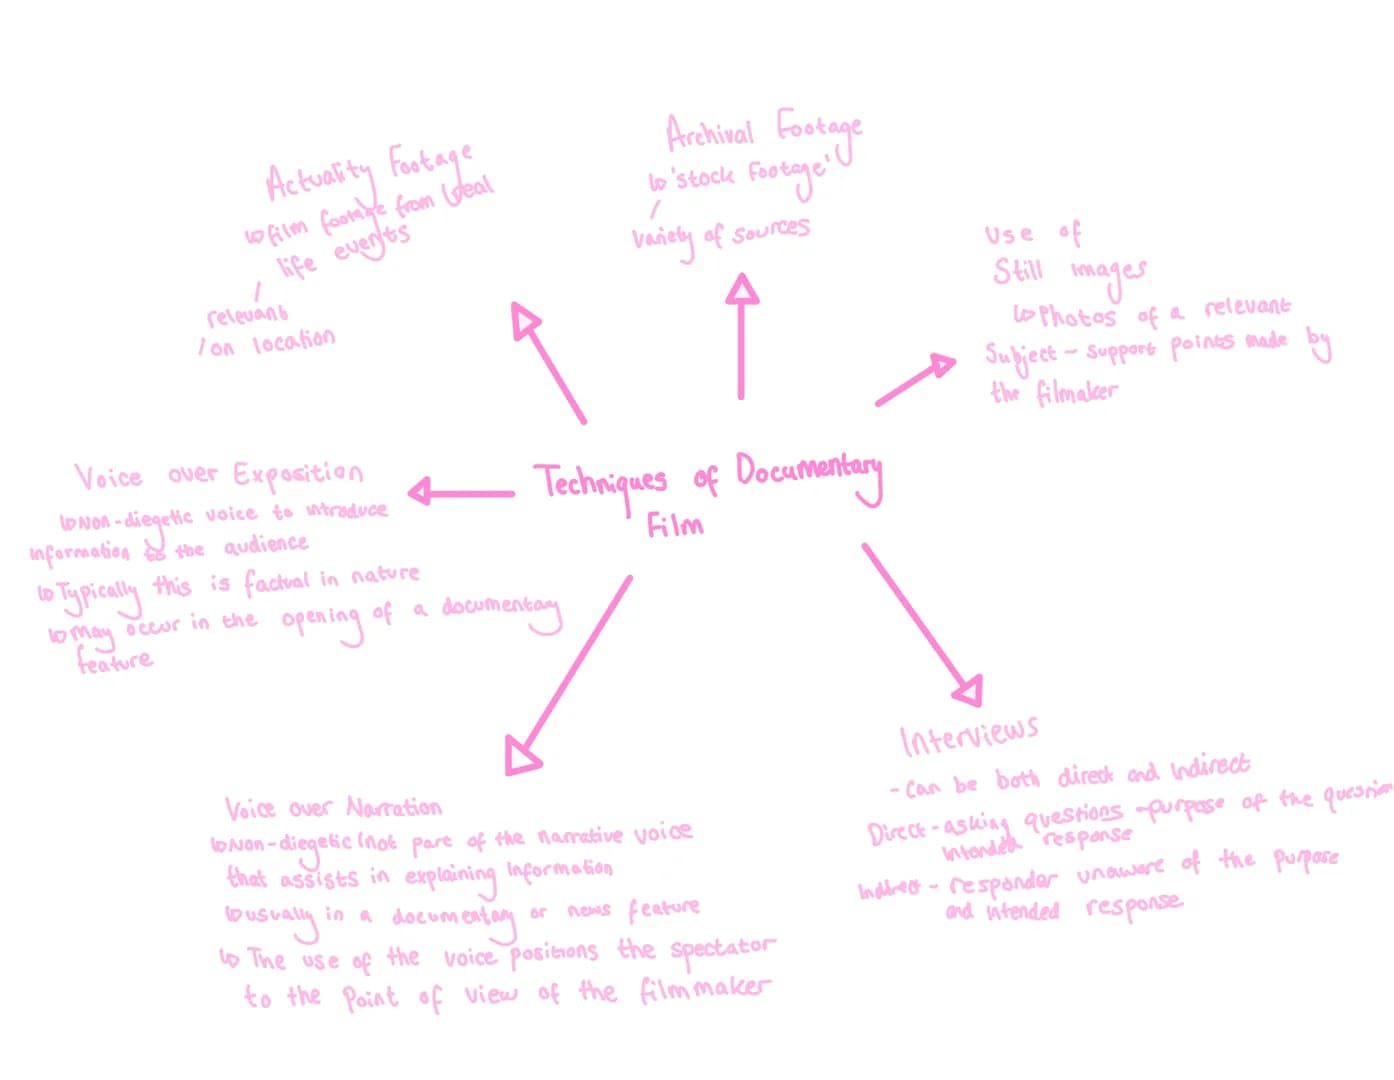 Techniques of Documentary
Film
Actuality Footage
↳ film footage from real
life events
/
relevant
/ on location
Archival Footage
↳ 'stock footage'
/
variety of sources
Use of
Still images
↳ Photos of a relevant
Subject - support points made by
the filmaker
Voice over Exposition
↳ Non-diegetic voice to introduce
information to the audience
↳ Typically this is factual in nature
↳ may occur in the opening of a documentary
feature
Voice over Narration
↳ Non-diegetic (not part of the narrative voice
that assists in explaining information
↳ usually in a documentary or news feature
↳ The use of the voice positions the spectator
to the point of view of the filmmaker
Interviews
- can be both direct and indirect
Direct - asking questions - purpose of the question
intended response
Indirect - responder unaware of the purpose
and intended response